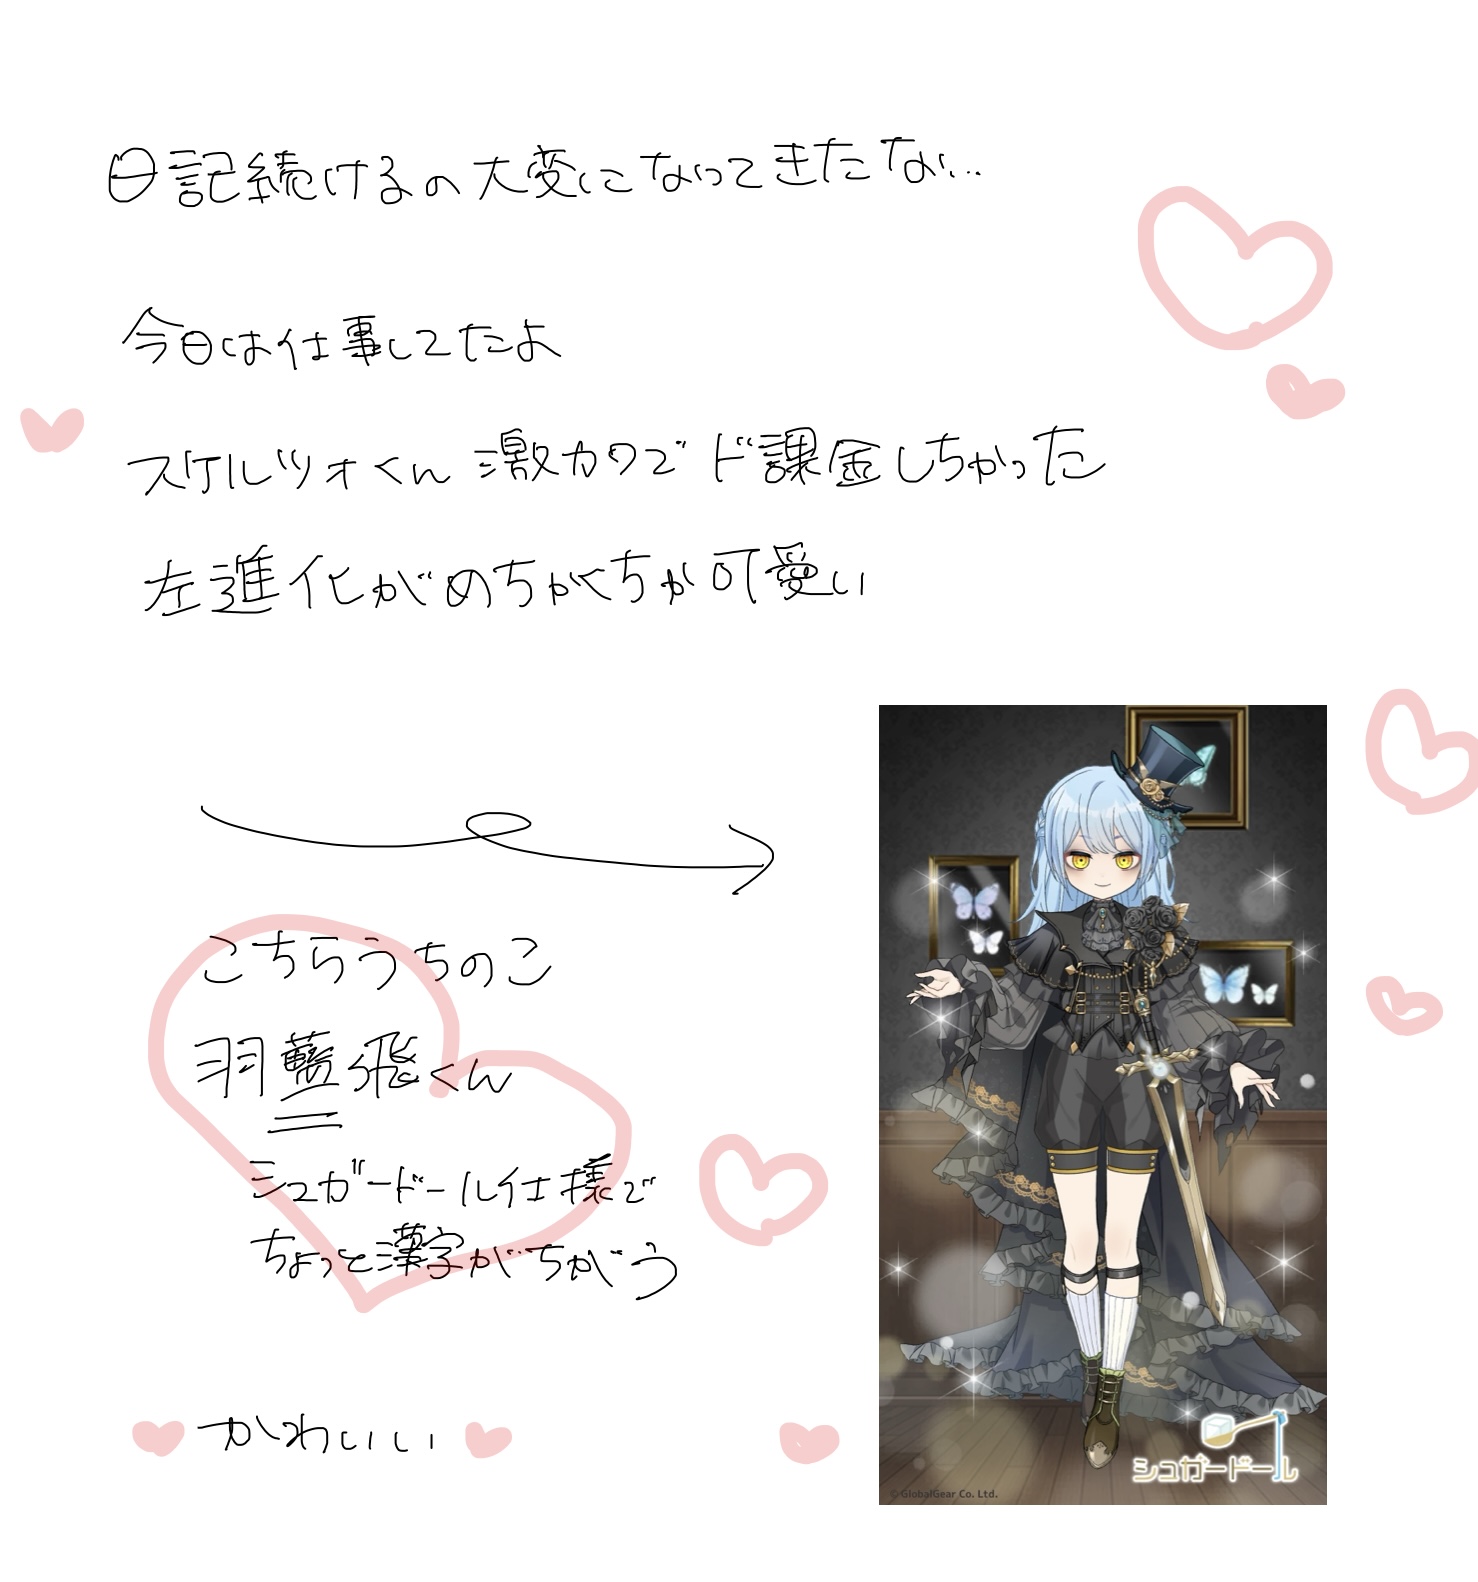 日記続けるの大変になってきたな…
今日は仕事してたよ
スケルツォくん激カワでド課金しちゃった
左進化がめちゃくちゃ可愛い
こちらうちのこ
羽藍飛くん
シュガードール仕様で
ちょっと漢字がちがう
かわいい
シュガードール
© GlobalGear Co. Ltd.